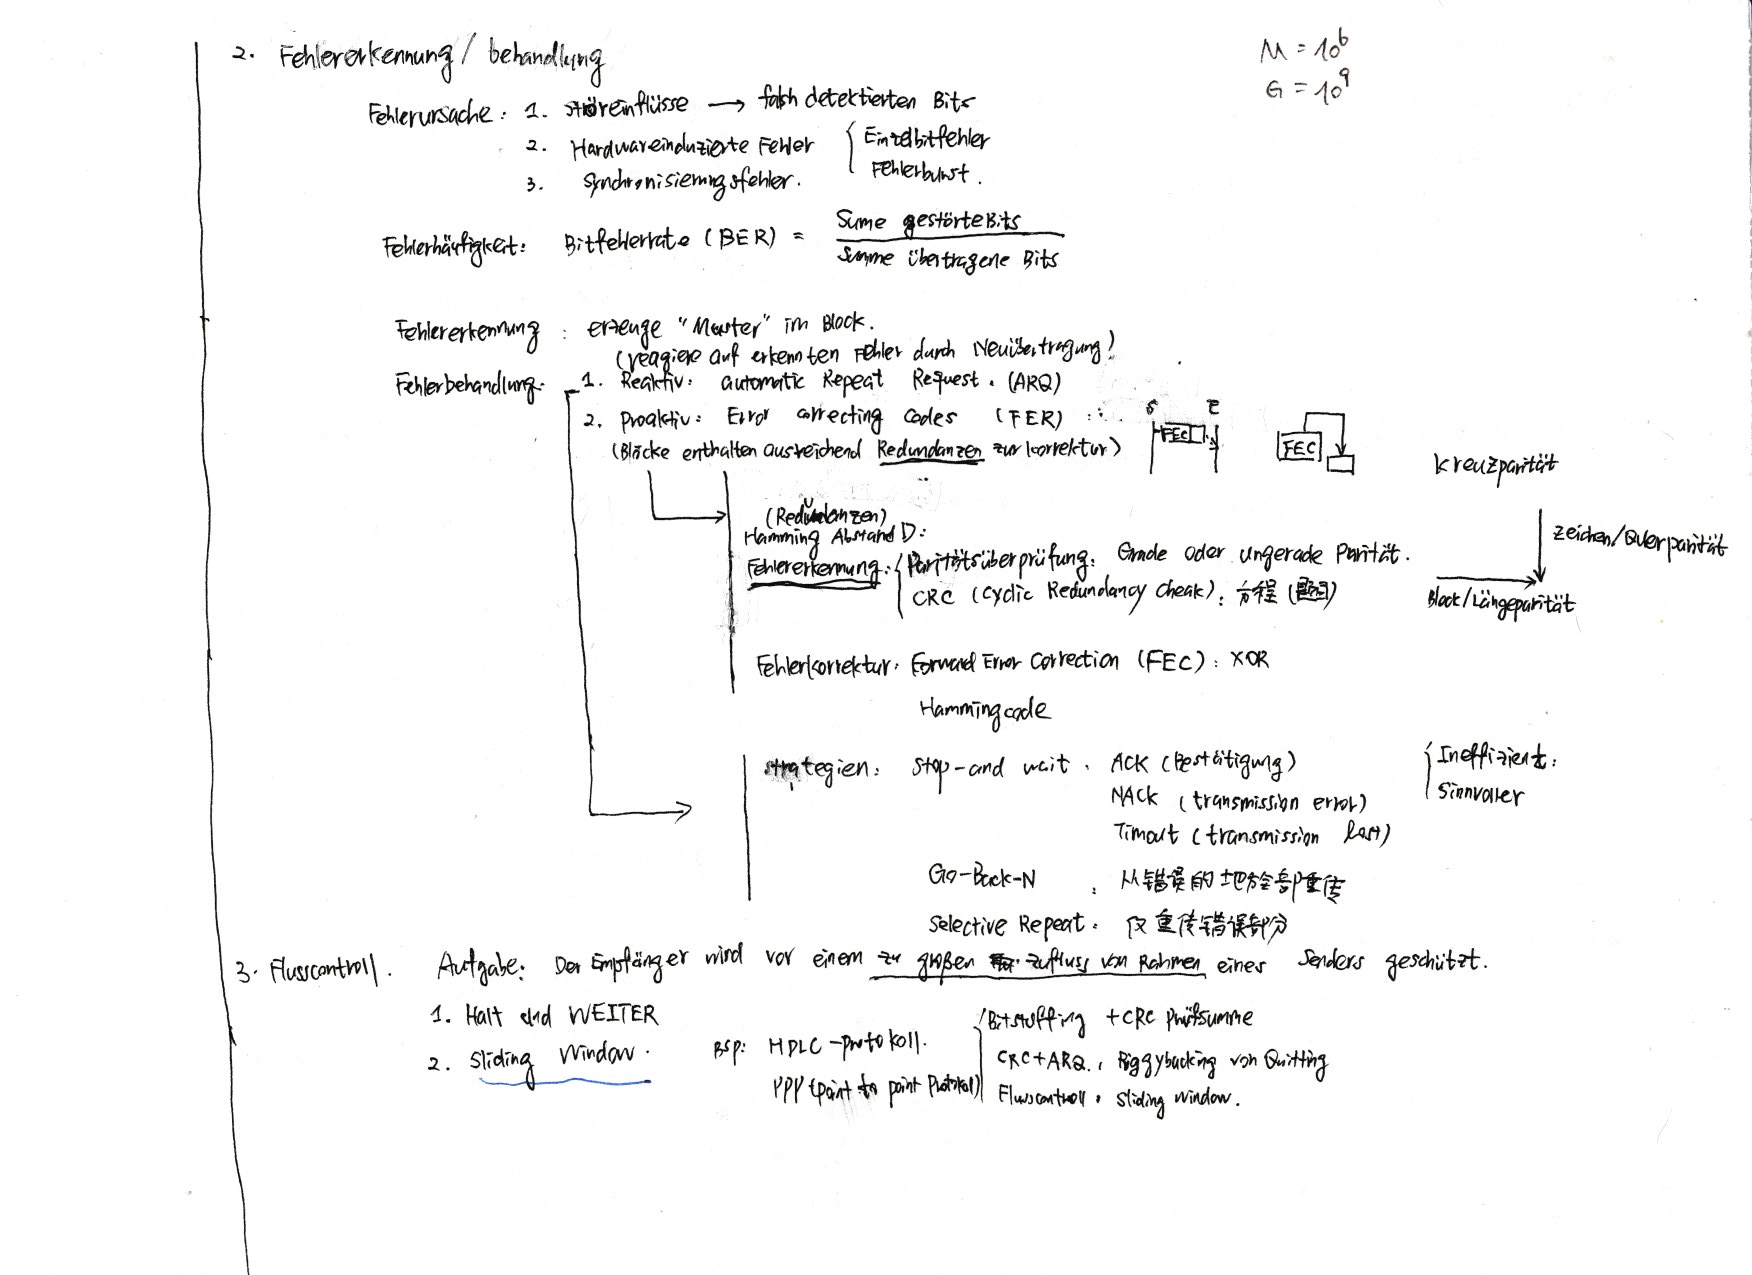 2. Fehlererkennung / behandlung
M = 10^6
G = 10^9
Fehlerursache: 1. störeinflüsse → falsh detektierten Bits
2. Hardwareinduzierte Fehler { Einzelbitfehler
Fehlerburst.
3. Synchronisierungsfehler.
Fehlerhäufigkeit: Bitfehlerrate (BER) = Sume gestörte Bits
Summe übertragene Bits
Fehlererkennung: erzeuge "Muster" im Block.
(reagiere auf erkennten Fehler durch Neuübertragung!
Fehlerbehandlung: 1. Reaktiv: automatic Repeat Request. (ARQ)
2. Proaktiv: Error correcting codes (FER)
S E
FEC
FEC
(Blöcke enthalten ausreichend Redundanzen zur korrektur)
Kreuzparität
(Redundanzen)
Hamming Abstand D:
Zeichen/Querparität
Fehlererkennung: { Paritätsüberprüfung: Grade oder ungerade Parität.
CRC (Cyclic Redundancy Cheak): 方程 ()
Block/Längeparität
Fehlerkorrektur: Forward Error Correction (FEC): XOR
Hammingcode
strategien: Stop-and wait. ACK (Bestätigung)
NACK (transmission error)
Timout (transmission lost)
{ Ineffizient:
Sinnvoller
Go-Back-N : 从错误的地方全部重传
Selective Repeat. 仅重传错误部分
3. Flusscontroll. Aufgabe: Der Empfänger wird vor einem zu großen zufluss von Rahmen eines Senders geschützt.
1. Halt und WEITER
2. Sliding Window.
Bsp: HDLC-protokoll.
PPP (point to point Protokol)
{ Bitstuffing + CRC Prüfsumme
CRC+ARQ, Piggybacking von Quitting
Flusscontroll. Sliding Window.